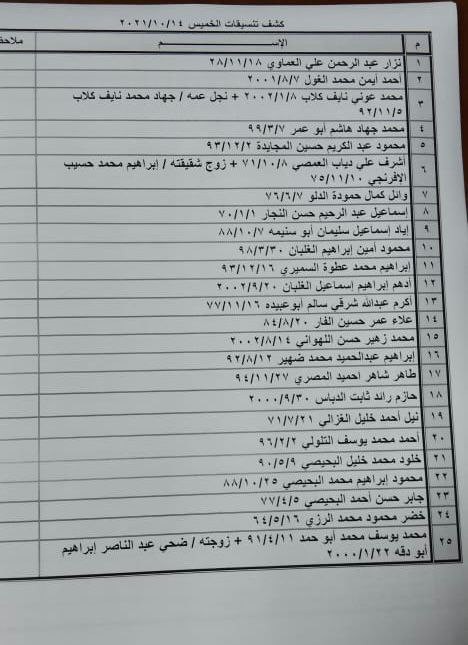 كشف تنسيقات الخميس ٢٠٢١/١٠/١٤
م الإســـــــم ملاحظ
١ نزار عبد الرحمن علي العماوي ٢٨/١١/١٨
٢ أحمد أيمن محمد الغول ٢٠٠١/٨/٧
٣ محمد عوني نايف كلاب ٢٠٠٢/١/٨ + نجل عمه / جهاد محمد نايف كلاب
٩٢/١١/٥
٤ محمد جهاد هاشم أبو عمر ٩٩/٣/٧
٥ محمود عبد الكريم حسين المجايدة ٩٣/١٢/٢
٦ أشرف علي دياب العمصي ٧١/١٠/٨ + زوج شقيقته / إبراهيم محمد حسيب
الافرنجي ٧٥/١١/١٠
٧ وائل كمال حمودة الدلو ٧٦/٦/٧
٨ إسماعيل عبد الرحيم حسن النجار ٧٠/١/١
٩ إياد إسماعيل سليمان أبو سنيمه ٨٨/١٠/٧
١٠ محمود أمين إبراهيم الغلبان ٩٨/٣/٣٠
١١ إبراهيم محمد عطوة السميري ٩٣/١٢/١٦
١٢ أدهم إبراهيم إسماعيل الغلبان ٢٠٠٢/٩/٢٠
١٣ أكرم عبدالله شرقي سالم أبوعبيده ٧٧/١١/١٦
١٤ علاء عمر حسين الفار ٨٤/٨/٢٠
١٥ محمد زهير حسن اللهواني ٢٠٠٢/٨/١٤
١٦ إبراهيم عبدالحميد محمد ضهير ٩٢/٨/١٢
١٧ طاهر شاهر احميد المصري ٩٤/١١/٢٧
١٨ حازم رائد ثابت الدباس ٢٠٠٠/٩/٣٠
١٩ نبل أحمد خليل الغزالي ٧١/٧/٢١
٢٠ أحمد محمد يوسف التلولي ٩٦/٢/٢
٢١ خلود محمد خليل البحيصي ٩٠/٥/٩
٢٢ محمود إبراهيم محمد البحيصي ٨٨/١٠/٢٥
٢٣ جابر حسن أحمد البحيصي ٧٧/٤/٥
٢٤ خضر محمود محمد الرزي ٦٤/٥/١٦
٢٥ محمد يوسف محمد أبو حمد ٩١/٤/١١ + زوجته / ضحي عبد الناصر إبراهيم
أبو دقه ٢٠٠٠/١/٢٢